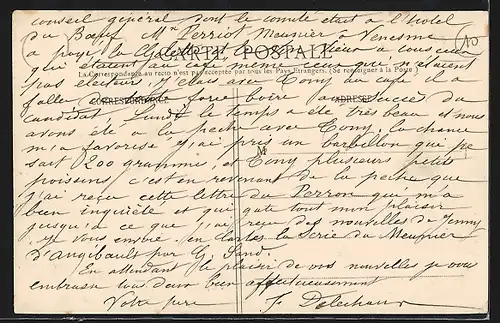 conseil général dont le comité était à l'hôtel
du Bœuf Mr Perriot Meunier à Venesme
a payé la à tous ceux
CARTE POSTALE
qui étaient au café même ceux qui n'étaient
La Correspondance au recto n'est pas acceptée par tous les Pays Étrangers. (Se renseigner à la Poste)
pas électeurs, j'étais avec Tony au café il a
fallu de force boire au succès du
CORRESPONDANCE
ADRESSE
candidat Lundi le temps a été très beau et nous
avons été à la pêche avec Tony, la chance
m'a favorisé j'ai pris un barbillon qui pe
M
sait 200 grammes et Tony plusieurs petits
poissons c'est en revenant de la pêche que
j'ai reçu cette lettre du Perron qui m'a
bien inquiété et qui gâte tout mon plaisir
jusqu'à ce que j'ai reçu des nouvelles de Jenny
je vous envoie en cartes la Série du Meunier
d'Angibault par G. Sand.
En attendant le plaisir de vos nouvelles je vous
embrasse tous deux bien affectueusement
Votre père